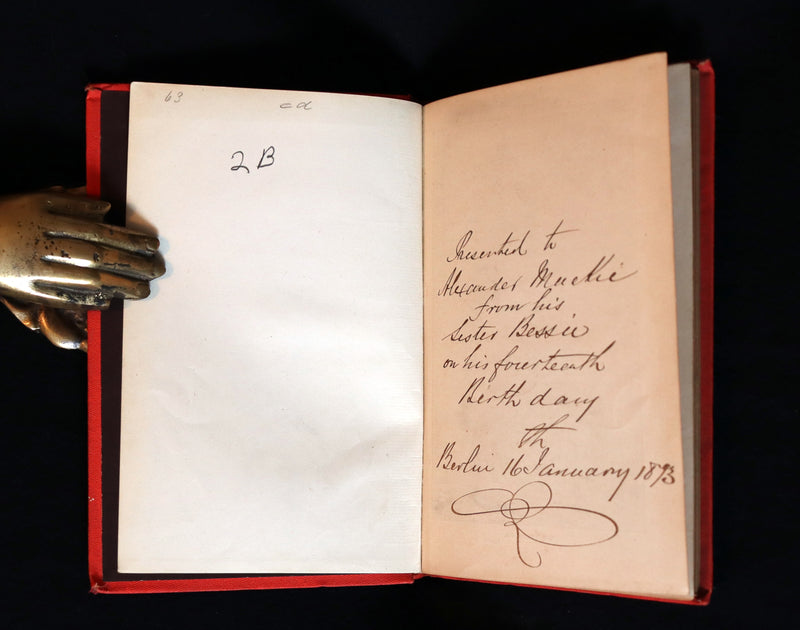 63
cd
2B
Presented to
Alexander Mackie
from his
Sister Bessie
on his fourteenth
Birth day
th
Berlin 16 January 1873